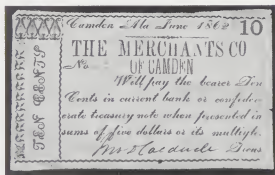 Camden Ala June 1862
10
THE MERCHANTS CO
No. OF CAMDEN
Will pay the bearer Ten
Cents in current bank or confeder
erate treasury note when presented in
sums of five dollars or its multiple.
Treas
TEN CENTS